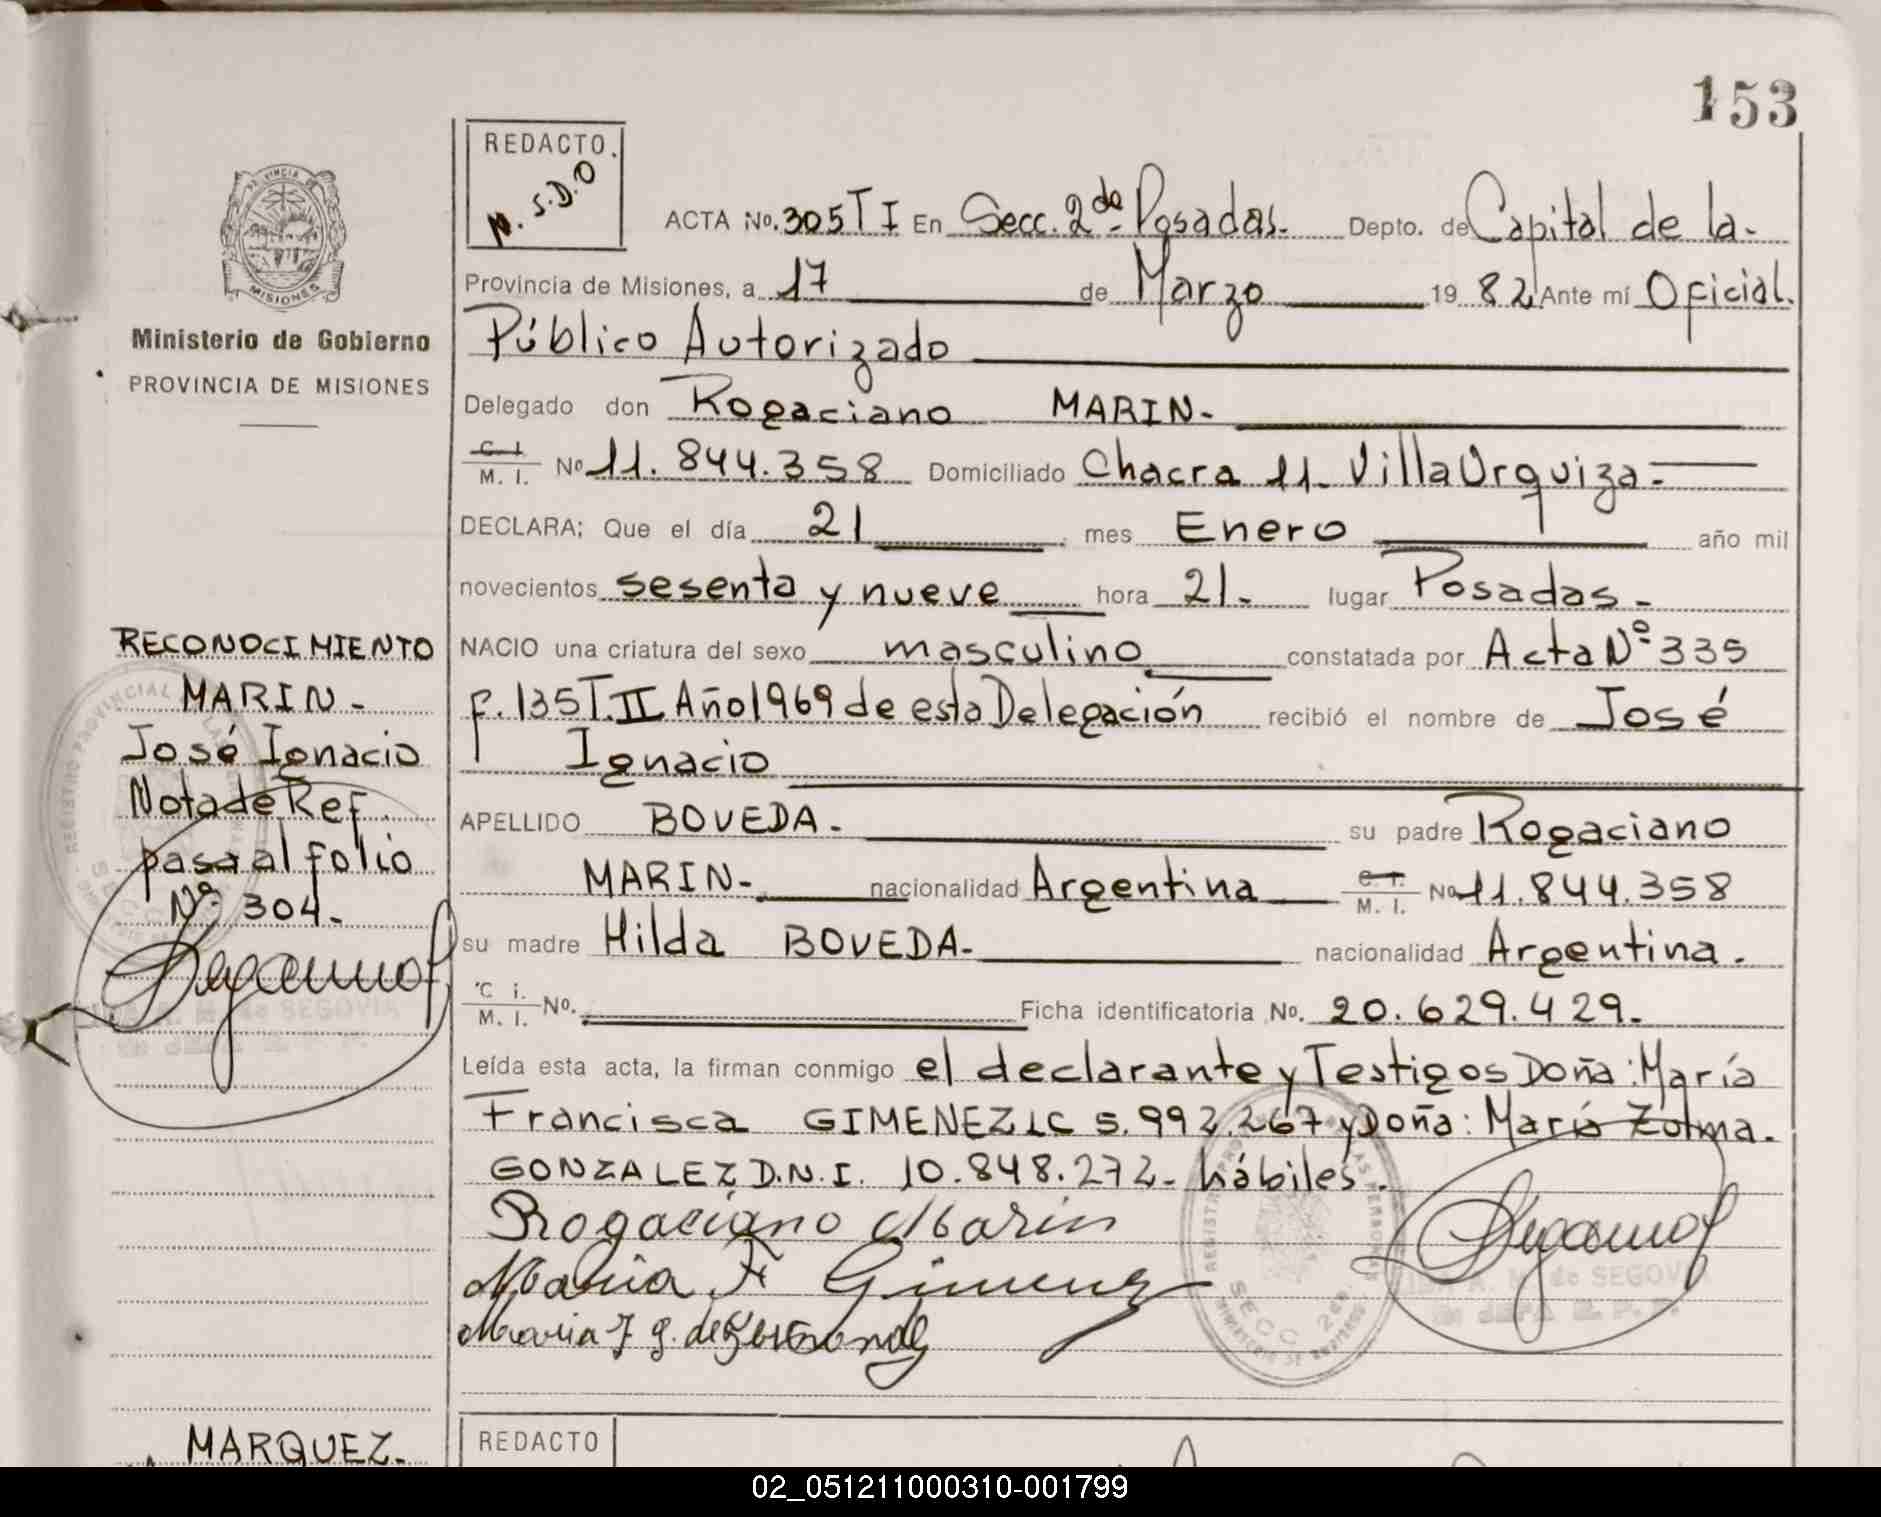 153
REDACTO.
N. S.D.O
ACTA No. 305 T I En Secc. 2da Posadas. Depto. de Capital de la.
Provincia de Misiones, a 17 de Marzo 19 82 Ante mí Oficial.
Público Autorizado
Delegado don Rogaciano MARIN-
C. I. / M. I. No 11.844.358 Domiciliado Chacra 11- Villa Urquiza-
DECLARA; Que el día 21 mes Enero año mil
novecientos sesenta y nueve hora 21. lugar Posadas-
NACIO una criatura del sexo masculino constatada por Acta Nº 335
f. 135 T. II Año 1969 de esta Delegación recibió el nombre de José
Ignacio
APELLIDO BOVEDA- su padre Rogaciano
MARIN- nacionalidad Argentina C. I. / M. I. No 11.844.358
su madre Hilda BOVEDA- nacionalidad Argentina.
C I. / M. I. No.
Ficha identificatoria No. 20.629.429-
Leída esta acta, la firman conmigo el declarante y Testigos Doña: María
Francisca GIMENEZ LC 5.992.267 y Doña: María Zulma.
GONZALEZ, D.N.I. 10.848.272- hábiles.
Rogaciano Marin
Maria F Gimenez
PROVINCIA DE
MISIONES
Ministerio de Gobierno
PROVINCIA DE MISIONES
RECONOCIMIENTO
MARIN-
José Ignacio
Nota de Ref.
pasa al folio
Nº 304-
REGISTRO PROVINCIAL DE LAS PERSONAS
SECC 2da.
H. de SEGOVIA
REGISTRO PROVINCIAL DE LAS PERSONAS
SECC 2da.
MINISTERIO DE GOBIERNO
de SEGOVIA
MARQUEZ-
REDACTO
02_051211000310-001799